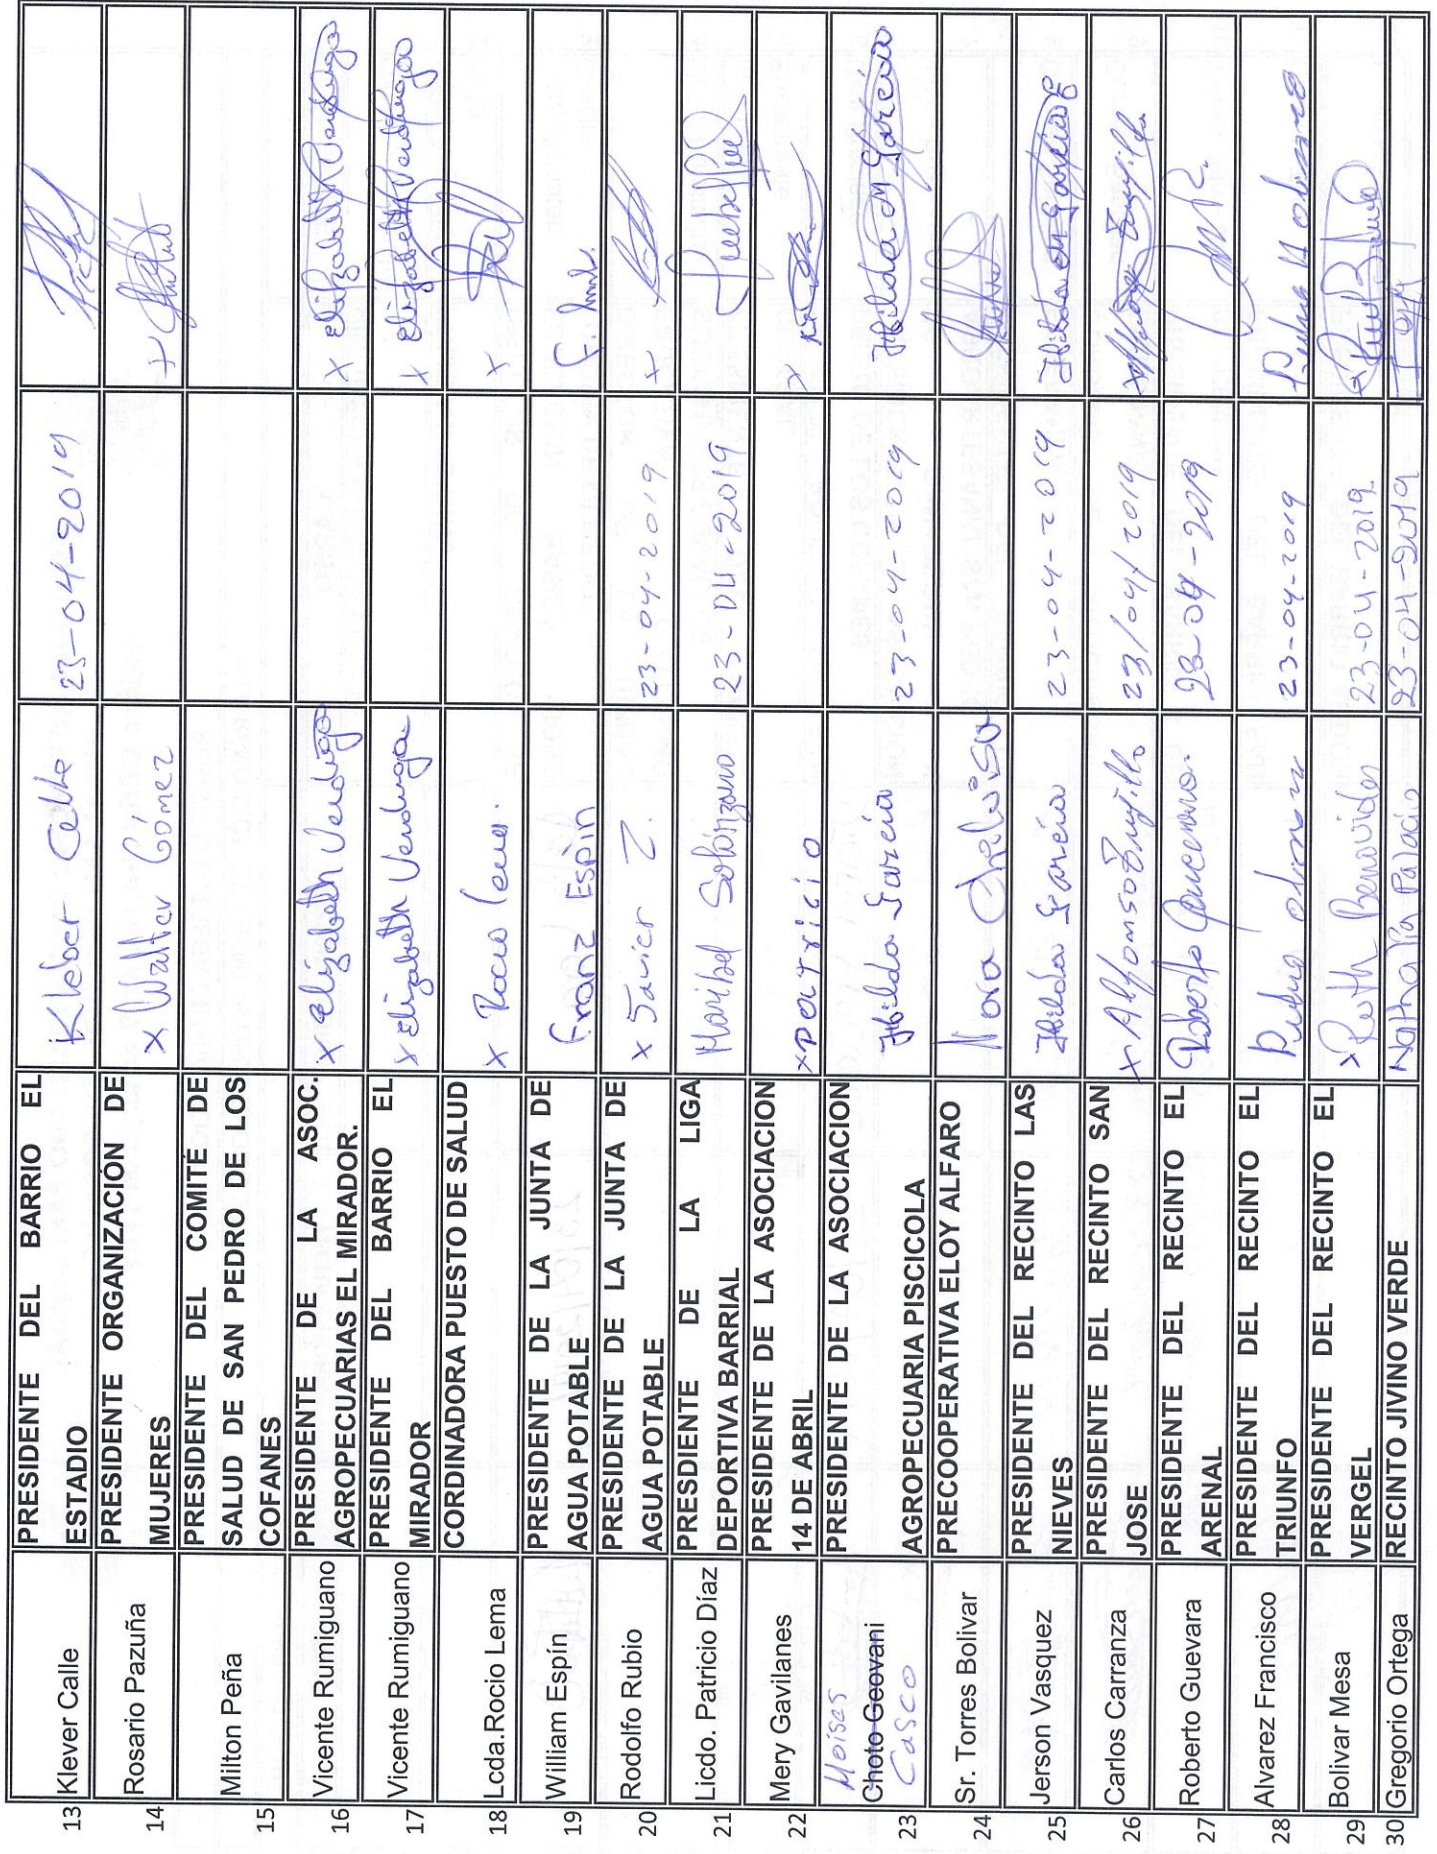 13 Klever Calle PRESIDENTE DEL BARRIO EL ESTADIO Kleber Calle 23-04-2019
14 Rosario Pazuña PRESIDENTE ORGANIZACIÓN DE MUJERES x Walter Gómez x
15 Milton Peña PRESIDENTE DEL COMITÉ DE SALUD DE SAN PEDRO DE LOS COFANES
16 Vicente Rumiguano PRESIDENTE DE LA ASOC. AGROPECUARIAS EL MIRADOR. x Elizabeth Verdugo x Elizabeth Verdugo
17 Vicente Rumiguano PRESIDENTE DEL BARRIO EL MIRADOR x Elizabeth Verdugo x Elizabeth Verdugo
18 Lcda.Rocio Lema CORDINADORA PUESTO DE SALUD x Rocio Lema. x
19 William Espín PRESIDENTE DE LA JUNTA DE AGUA POTABLE Franz Espín
20 Rodolfo Rubio PRESIDENTE DE LA JUNTA DE AGUA POTABLE x Javier Z. 23-04-2019 x
21 Licdo. Patricio Díaz PRESDIENTE DE LA LIGA DEPORTIVA BARRIAL Maribel Solórzano 23-04-2019
22 Mery Gavilanes PRESIDENTE DE LA ASOCIACION 14 DE ABRIL x Patricio x
23 Choto Geovani Moises Casco PRESIDENTE DE LA ASOCIACION AGROPECUARIA PISCICOLA Hilda García 23-04-2019 Hilda M García
24 Sr. Torres Bolivar PRECOOPERATIVA ELOY ALFARO Nora
25 Jerson Vasquez PRESIDENTE DEL RECINTO LAS NIEVES Hilda García 23-04-2019 Hilda M García
26 Carlos Carranza PRESIDENTE DEL RECINTO SAN JOSE x Alfonso Trujillo 23/04/2019
27 Roberto Guevara PRESIDENTE DEL RECINTO EL ARENAL Roberto 23-04-2019
28 Alvarez Francisco PRESIDENTE DEL RECINTO EL TRIUNFO 23-04-2019
29 Bolivar Mesa PRESIDENTE DEL RECINTO EL VERGEL x Ruth Benavides 23-04-2019
30 Gregorio Ortega RECINTO JIVINO VERDE Nathalia Palacio 23-04-2019